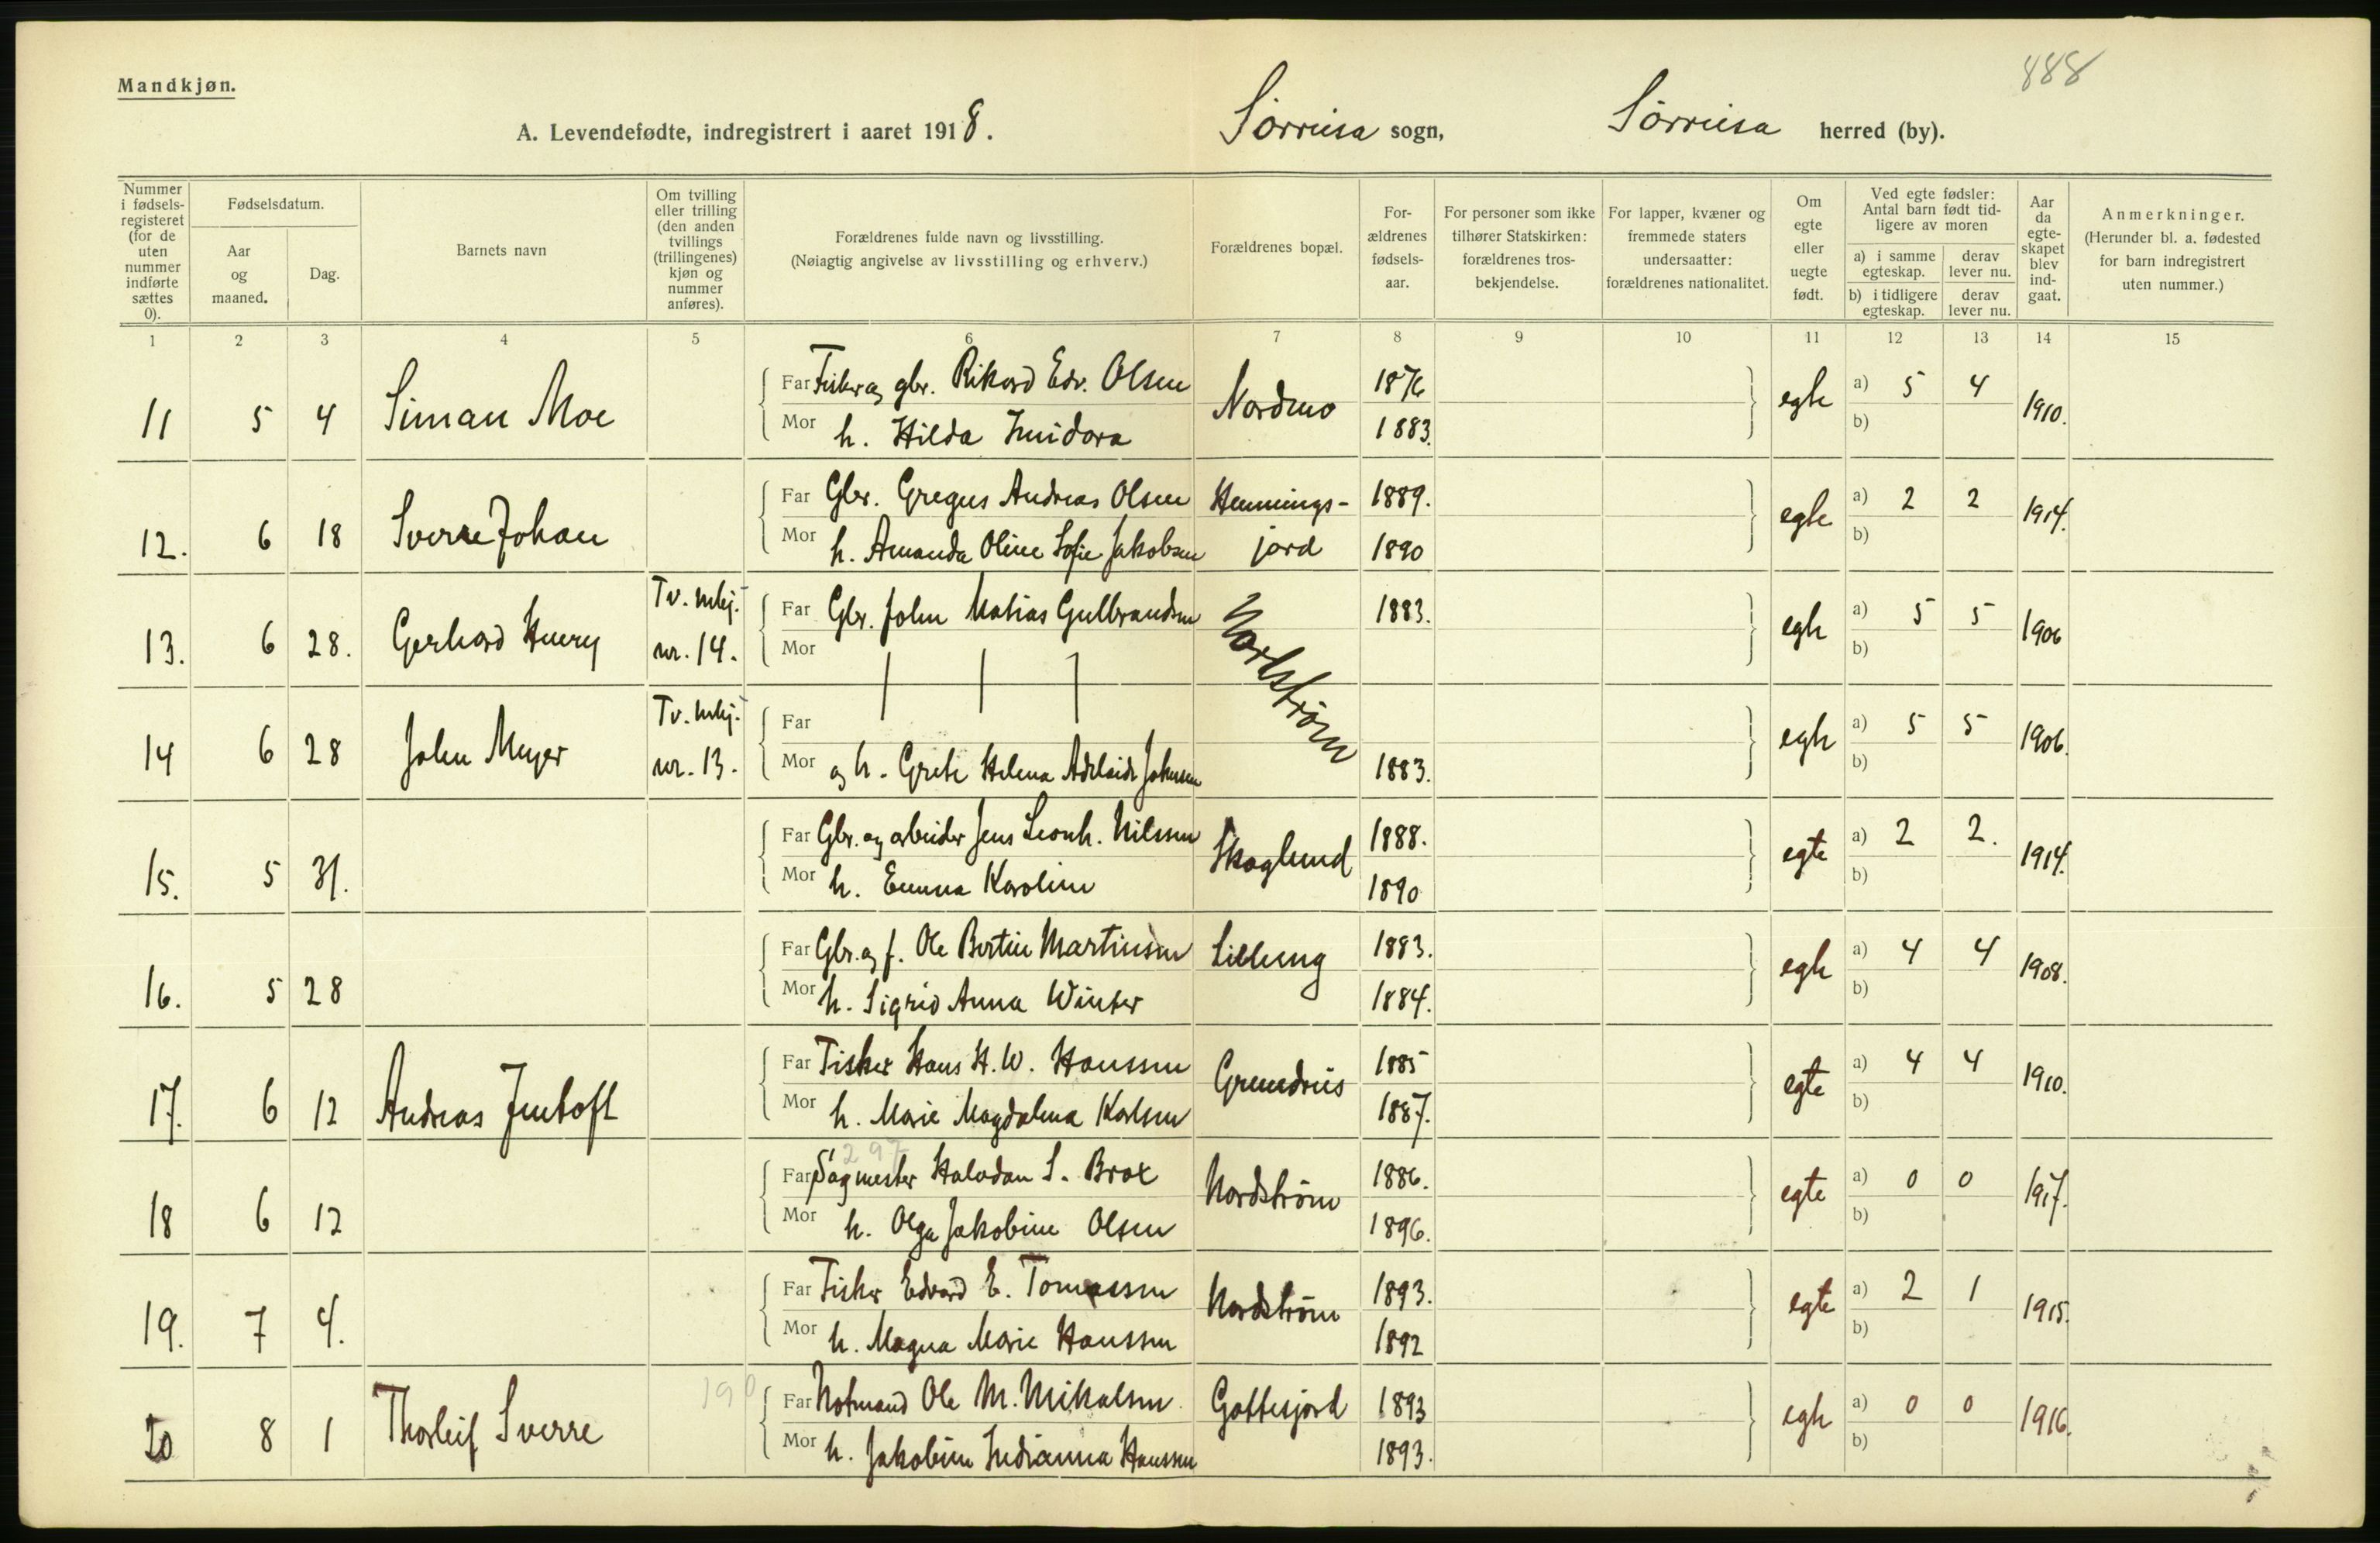 888
Mandkjøn.
A. Levendefødte, indregistrert i aaret 1918. Sørreisa sogn, Sørreisa herred (by).
Nummer i fødselsregisteret (for de uten nummer indførte sættes 0).
Fødselsdatum.
Aar og maaned.
Dag.
Barnets navn
Om tvilling eller trilling (den anden tvillings (trillingenes) kjøn og nummer anføres).
Forældrenes fulde navn og livsstilling.
(Nøiagtig angivelse av livsstilling og erhverv.)
Forældrenes bopæl.
Forældrenes fødselsaar.
For personer som ikke tilhører Statskirken: forældrenes trosbekjendelse.
For lapper, kvæner og fremmede staters undersaatter: forældrenes nationalitet.
Om egte eller uegte født.
Ved egte fødsler: Antal barn født tidligere av moren
a) i samme egteskap. derav lever nu.
b) i tidligere egteskap. derav lever nu.
Aar da egteskapet blev indgaat.
Anmerkninger.
(Herunder bl. a. fødested for barn indregistrert uten nummer.)
1 2 3 4 5 6 7 8 9 10 11 12 13 14 15
11 5 4 Siman Moe Far Fisker og gbr. Rikard Edv. Olsen Nordmo 1876 egte a) 5 4 1910.
Mor h. Hilda 1883. b)
12. 6 18 Sverre Johan Far Gbr. Gregus Andreas Olsen Hennings- 1889. egte a) 2 2 1914.
Mor h. Amanda Oline Sofie Jakobsen jord 1890 b)
13. 6 28. Gerhard Henry Tv. mkj. nr. 14. Far Gbr. John Matias Gulbrandsen Nordstrøm 1883. egte a) 5 5 1906
Mor b)
14 6 28 John Meyer Tv. mkj. nr. 13. Far egte a) 5 5 1906.
Mor og h. Grete Helena Adelaide Johnsen 1883. b)
15. 5 31. Far Gbr. og arbeider Jens Leonh. Nilssen Skoglund 1888. egte a) 2 2. 1914.
Mor h. Emma Karoline 1890 b)
16. 5 28 Far Gbr. og f. Ole Bertin Martinsen Lilleng 1883. egte a) 4 4 1908.
Mor h. Sigrid Anna Winter 1884. b)
17. 6 12 Andreas Jentoft Far Fisker Hans H. W. Hanssen Grunnreis 1885 egte a) 4 4 1910.
Mor h. Marie Magdalena Karlsen 1887. b)
297
18 6 12 Far Sagmester Halvdan S. Brox Nordstrøm 1886. egte a) 0 0 1917.
Mor h. Olga Jakobine Olsen 1896. b)
19. 7 4. Far Fisker Edvard E. Tomassen Nordstrøm 1893. egte a) 2 1 1915.
Mor h. Magna Marie Hanssen 1892 b)
190
20 8 1 Thorleif Sverre Far Notmand Ole M. Mikalsen Gottesjord 1893 egte a) 0 0 1916.
Mor h. Jakobine Indianna Hanssen 1893. b)